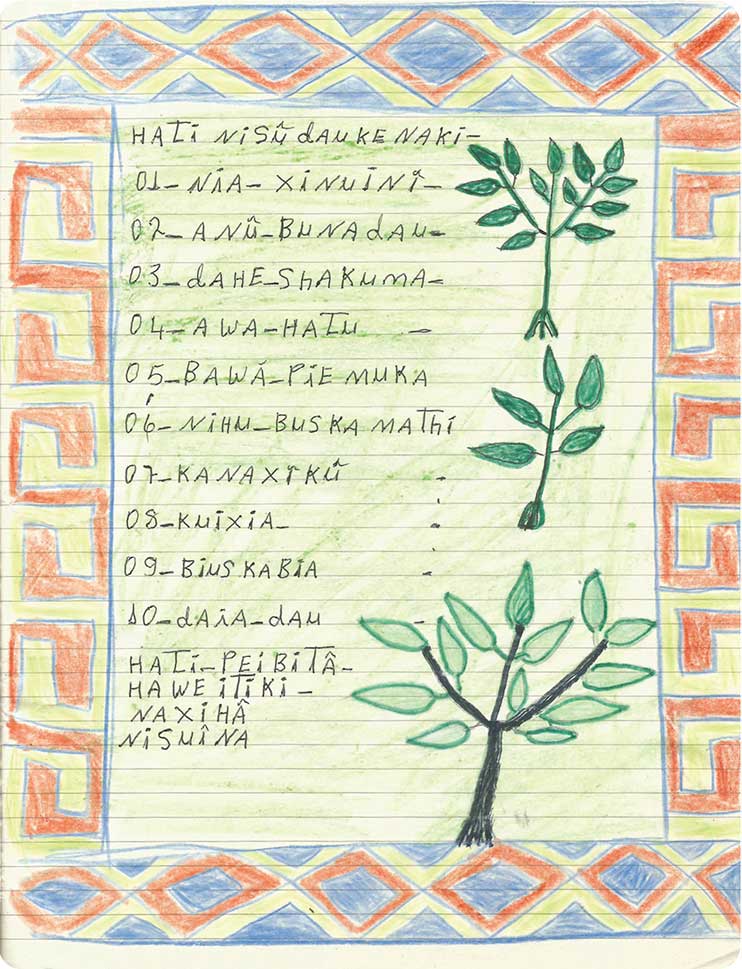 HATI NISŨ dAUKE NAKI-
01- NIA- XINUINÎ-
02- ANŨ-BUNAdAU-
03-dAHE-SHAKUMA-
04-AWA-HATU -
05-BAWÁ-PIE MUKA
06-NIHU-BUSKAMATHI
07-KANAXÎKŨ -
08-KUIXIA-
09-BIUSKABIA -
10-dAIA-dAU -
HATI-PEI BITÂ-
HAWE ITIKI-
NAXIHÂ
NISUÎNA